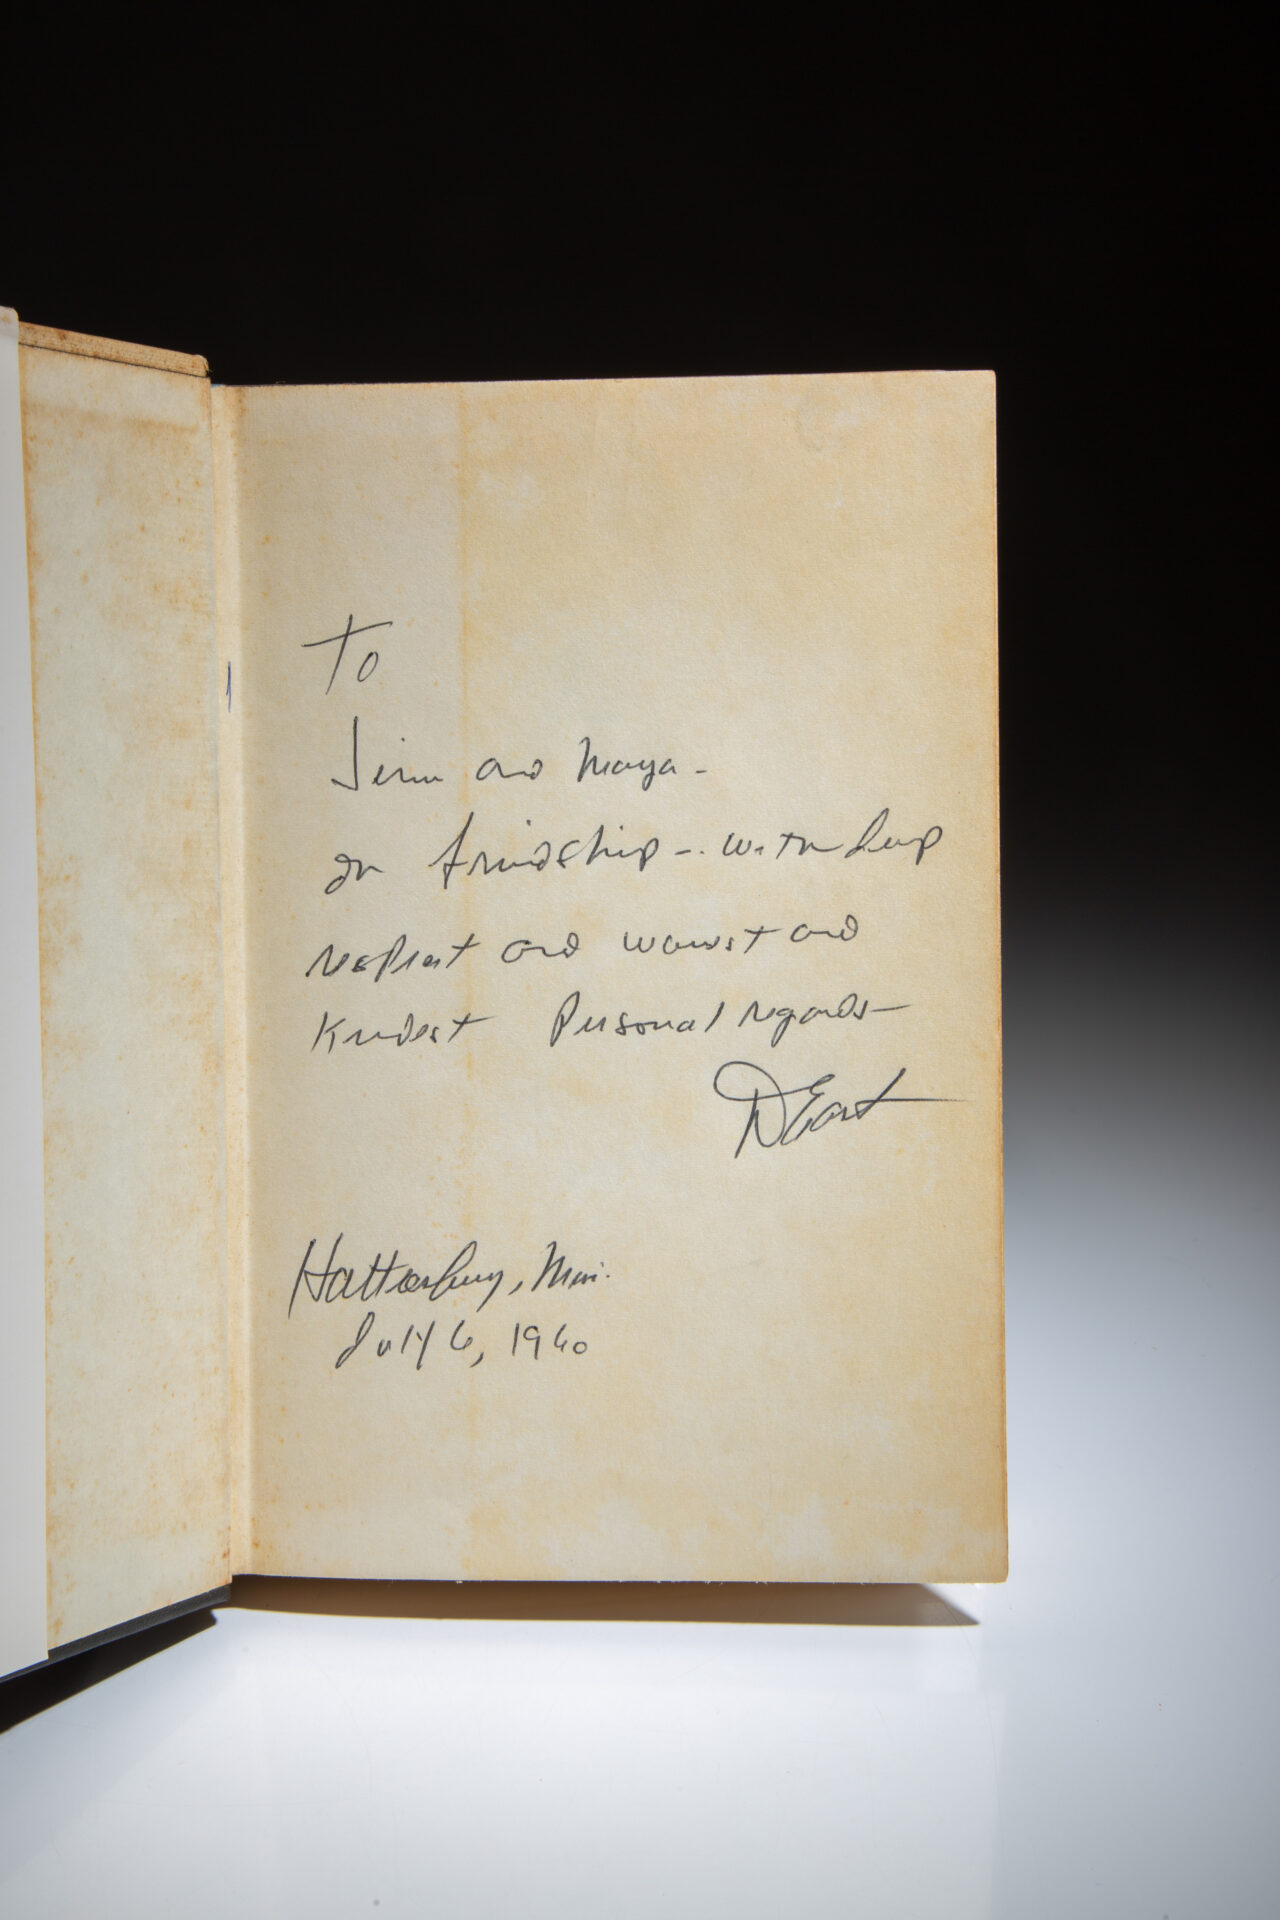 To
Jim and Maya -
In friendship - with deep
respect and warmest and
Kindest Personal regards -
P D East
Hattiesburg, Miss.
July 6, 1960